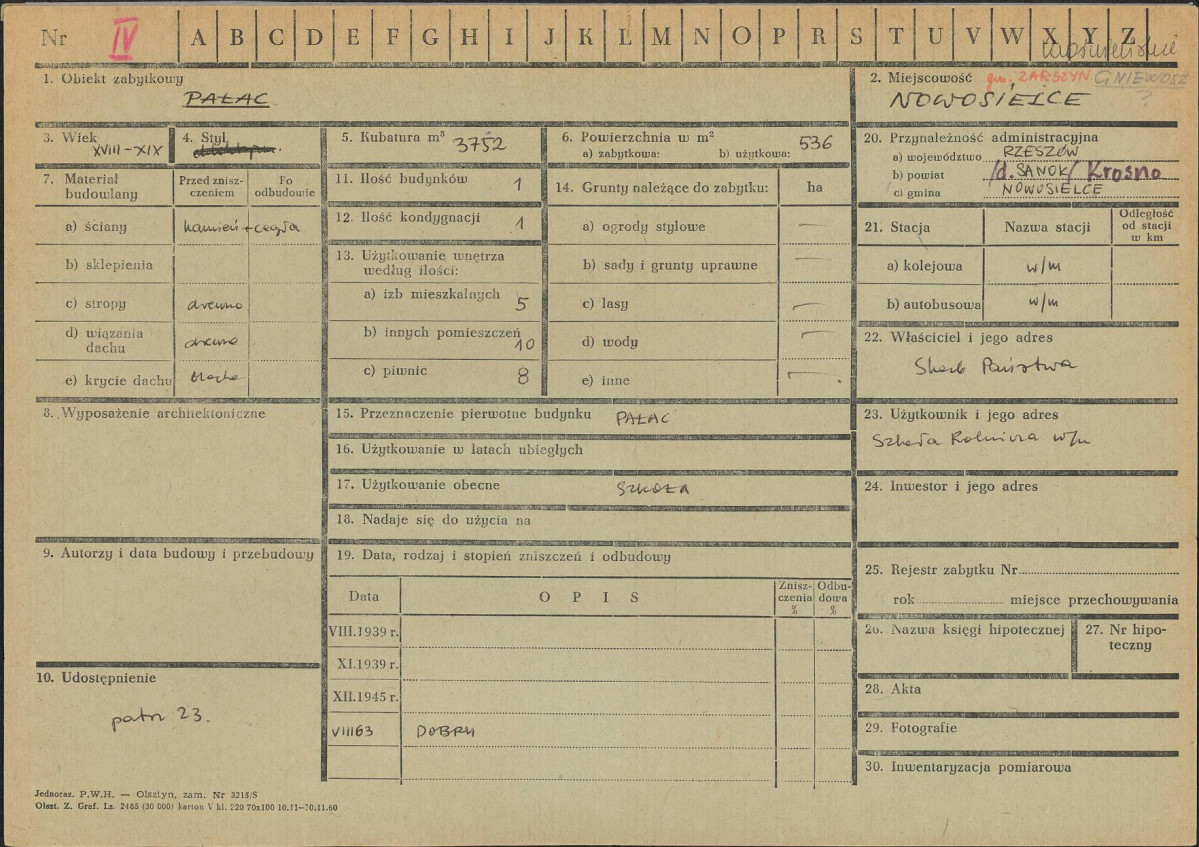 Nr IV A B C D E F G H I J K L M N O P R S T U V W X Y Z
1. Obiekt zabytkowy
PAŁAC
2. Miejscowość gm. ZARSZYN GNIEWOSZ
NOWOSIELCE ?
3. Wiek
XVIII-XIX
4. Styl
5. Kubatura m³ 3752
6. Powierzchnia w m² 536
a) zabytkowa: b) użytkowa:
20. Przynależność administracyjna
a) województwo RZESZÓW
b) powiat /d. SANOK/ Krosno
c) gmina NOWOSIELCE
7. Materiał budowlany
Przed zniszczeniem
Po odbudowie
a) ściany kamień + cegła
b) sklepienia
c) stropy drewno
d) wiązania dachu drewno
e) krycie dachu blacha
11. Ilość budynków 1
12. Ilość kondygnacji 1
13. Użytkowanie wnętrza według ilości:
a) izb mieszkalnych 5
b) innych pomieszczeń 10
c) piwnic 8
14. Grunty należące do zabytku: ha
a) ogrody stylowe —
b) sady i grunty uprawne —
c) lasy —
d) wody —
e) inne —
21. Stacja Nazwa stacji Odległość od stacji w km
a) kolejowa w/m
b) autobusowa w/m
22. Właściciel i jego adres
Skarb Państwa
8. Wyposażenie architektoniczne
15. Przeznaczenie pierwotne budynku PAŁAC
16. Użytkowanie w latach ubiegłych
17. Użytkowanie obecne SZKOŁA
18. Nadaje się do użycia na
23. Użytkownik i jego adres
Szkoła Rolnicza w/m
24. Inwestor i jego adres
9. Autorzy i data budowy i przebudowy
19. Data, rodzaj i stopień zniszczeń i odbudowy
Data OPIS Zniszczenia % Odbudowa %
VIII.1939 r.
XI.1939 r.
XII.1945 r.
VIII 63 DOBRY
25. Rejestr zabytku Nr
rok miejsce przechowywania
26. Nazwa księgi hipotecznej
27. Nr hipoteczny
10. Udostępnienie
patrz 23.
28. Akta
29. Fotografie
30. Inwentaryzacja pomiarowa
Jednoraz. P.W.H. — Olsztyn, zam. Nr 3215/S
Olszt. Z. Graf. Lz. 2485 (30 000) karton V kl. 220 70x100 10.11—20.11.60